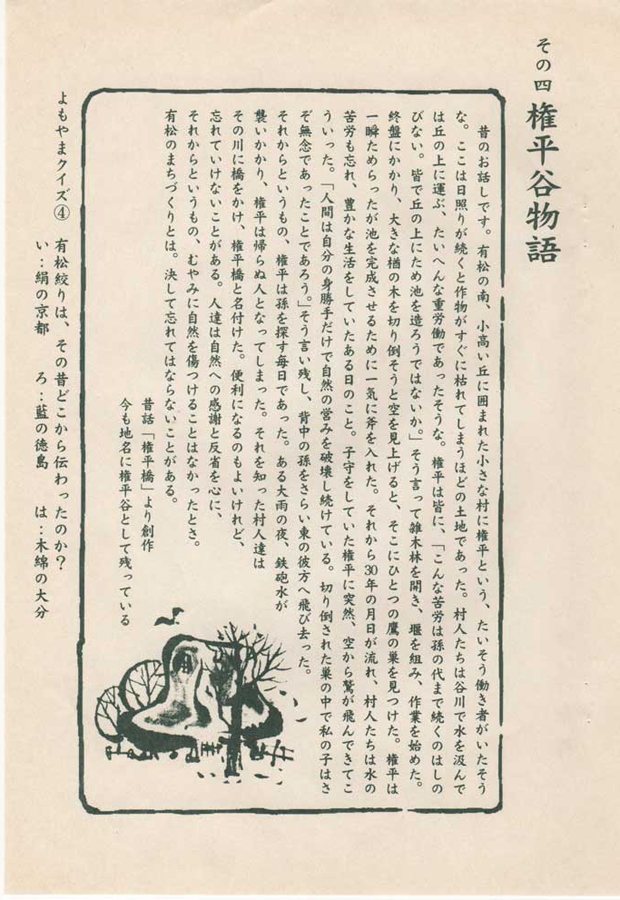 その四 権平谷物語
昔のお話しです。有松の南、小高い丘に囲まれた小さな村に権平という、たいそう働き者がいたそう
な。ここは日照りが続くと作物がすぐに枯れてしまうほどの土地であった。村人たちは谷川で水を汲んで
は丘の上に運ぶ、たいへんな重労働であったそうな。権平は皆に、「こんな苦労は孫の代まで続くのはしの
びない。皆で丘の上にため池を造ろうではないか。」そう言って雑木林を開き、堰を組み、作業を始めた。
終盤にかかり、大きな楢の木を切り倒そうと空を見上げると、そこにひとつの鷹の巣を見つけた。権平は
一瞬ためらったが池を完成させるために一気に斧を入れた。それから30年の月日が流れ、村人たちは水の
苦労も忘れ、豊かな生活をしていたある日のこと。子守をしていた権平に突然、空から鷲が飛んできてこ
ういった。「人間は自分の身勝手だけで自然の営みを破壊し続けている。切り倒された巣の中で私の子はさ
ぞ無念であったことであろう。」そう言い残し、背中の孫をさらい東の彼方へ飛び去った。
それからというもの、権平は孫を探す毎日であった。ある大雨の夜、鉄砲水が
襲いかかり、権平は帰らぬ人となってしまった。それを知った村人達は
その川に橋をかけ、権平橋と名付けた。便利になるのもよいけれど、
忘れていけないことがある。人達は自然への感謝と反省を心に、
それからというもの、むやみに自然を傷つけることはなかったとさ。
有松のまちづくりとは。決して忘れてはならないことがある。
昔話「権平橋」より創作
今も地名に権平谷として残っている
よもやまクイズ④ 有松絞りは、その昔どこから伝わったのか?
い：絹の京都 ろ：藍の徳島 は：木綿の大分